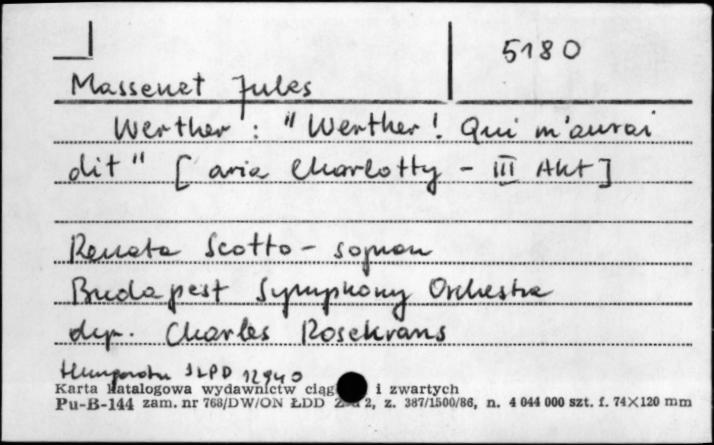 5180
Massenet Jules
Werther : "Werther! Qui m'aurai
dit" [aria Charlotty - III Akt]
Renata Scotto - sopran
Budapest Symphony Orchestra
dyr. Charles Rosekrans
Hungaroton SLPD 12940
Karta katalogowa wydawnictw ciąg i zwartych
Pu-B-144 zam. nr 768/DW/ON ŁDD 2, z. 387/1500/86, n. 4 044 000 szt. f. 74×120 mm